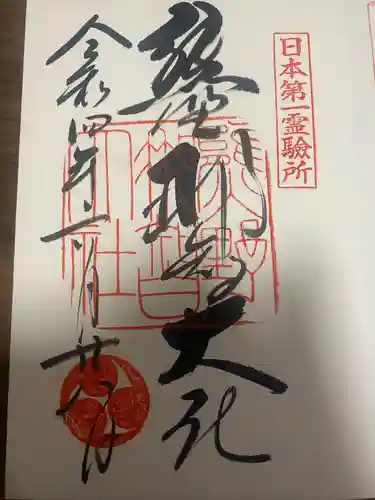 日本第一霊驗所
熊野那智大社
熊野
那智
大社
令和四年二月廿